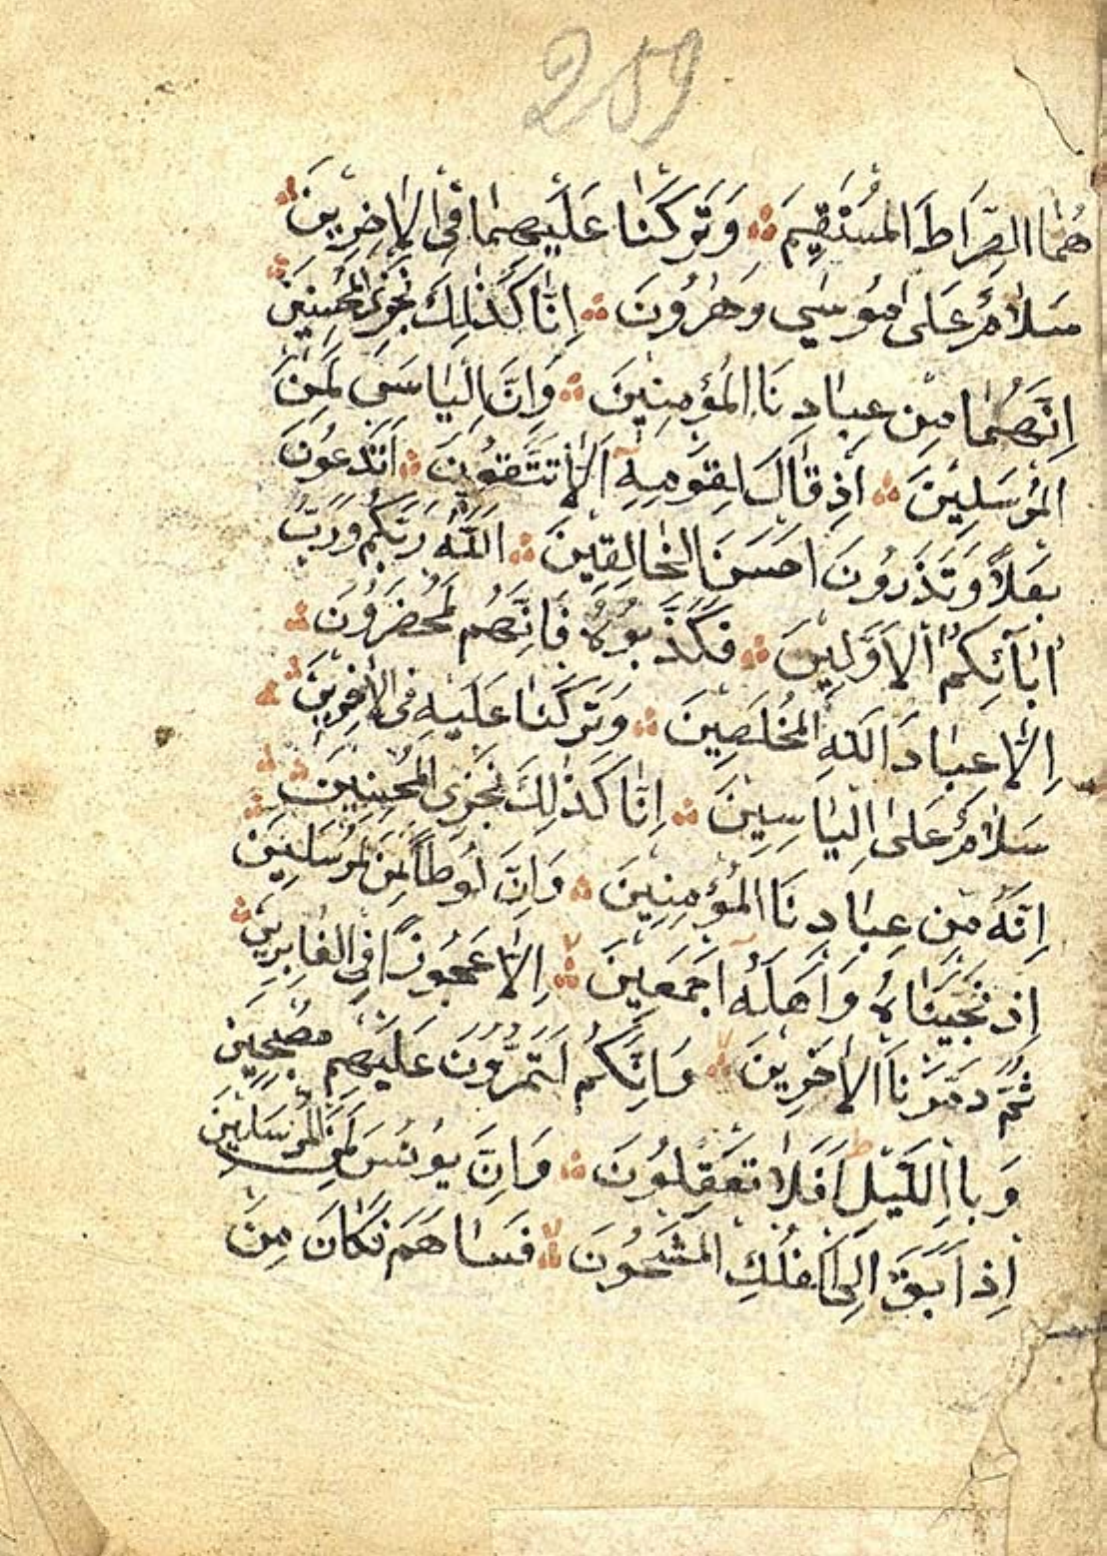 289
هُمَا الصِّرَاطَ الْمُسْتَقِيمَ وَتَرَكْنَا عَلَيْهِمَا فِي الْاٰخِرِينَ
سَلَامٌ عَلٰى مُوسٰي وَهٰرُونَ اِنَّا كَذٰلِكَ نَجْزِى الْمُحْسِنِينَ
اِنَّهُمَا مِنْ عِبَادِنَا الْمُؤْمِنِينَ وَاِنَّ اِلْيَاسَ لَمِنَ
الْمُرْسَلِينَ اِذْ قَالَ لِقَوْمِهِ اَلَا تَتَّقُونَ اَتَدْعُونَ
بَعْلًا وَتَذَرُونَ اَحْسَنَ الْخَالِقِينَ اَللّٰهَ رَبَّكُمْ وَرَبَّ
اٰبَآئِكُمُ الْاَوَّلِينَ فَكَذَّبُوهُ فَاِنَّهُمْ لَمُحْضَرُونَ
اِلَّا عِبَادَ اللّٰهِ الْمُخْلَصِينَ وَتَرَكْنَا عَلَيْهِ فِى الْاٰخِرِينَ
سَلَامٌ عَلٰى اِلْيَاسِينَ اِنَّا كَذٰلِكَ نَجْزِى الْمُحْسِنِينَ
اِنَّهُ مِنْ عِبَادِنَا الْمُؤْمِنِينَ وَاِنَّ لُوطًا لَمِنَ الْمُرْسَلِينَ
اِذْ نَجَّيْنَاهُ وَاَهْلَهُ اَجْمَعِينَ اِلَّا عَجُوزًا فِى الْغَابِرِينَ
ثُمَّ دَمَّرْنَا الْاٰخَرِينَ وَاِنَّكُمْ لَتَمُرُّونَ عَلَيْهِمْ مُصْبِحِينَ
وَبِااللَّيْلِ اَفَلَا تَعْقِلُونَ وَاِنَّ يُونُسَ لَمِنَ الْمُرْسَلِينَ
اِذْ اَبَقَ اِلَى الْفُلْكِ الْمَشْحُونِ فَسَاهَمَ فَكَانَ مِنَ